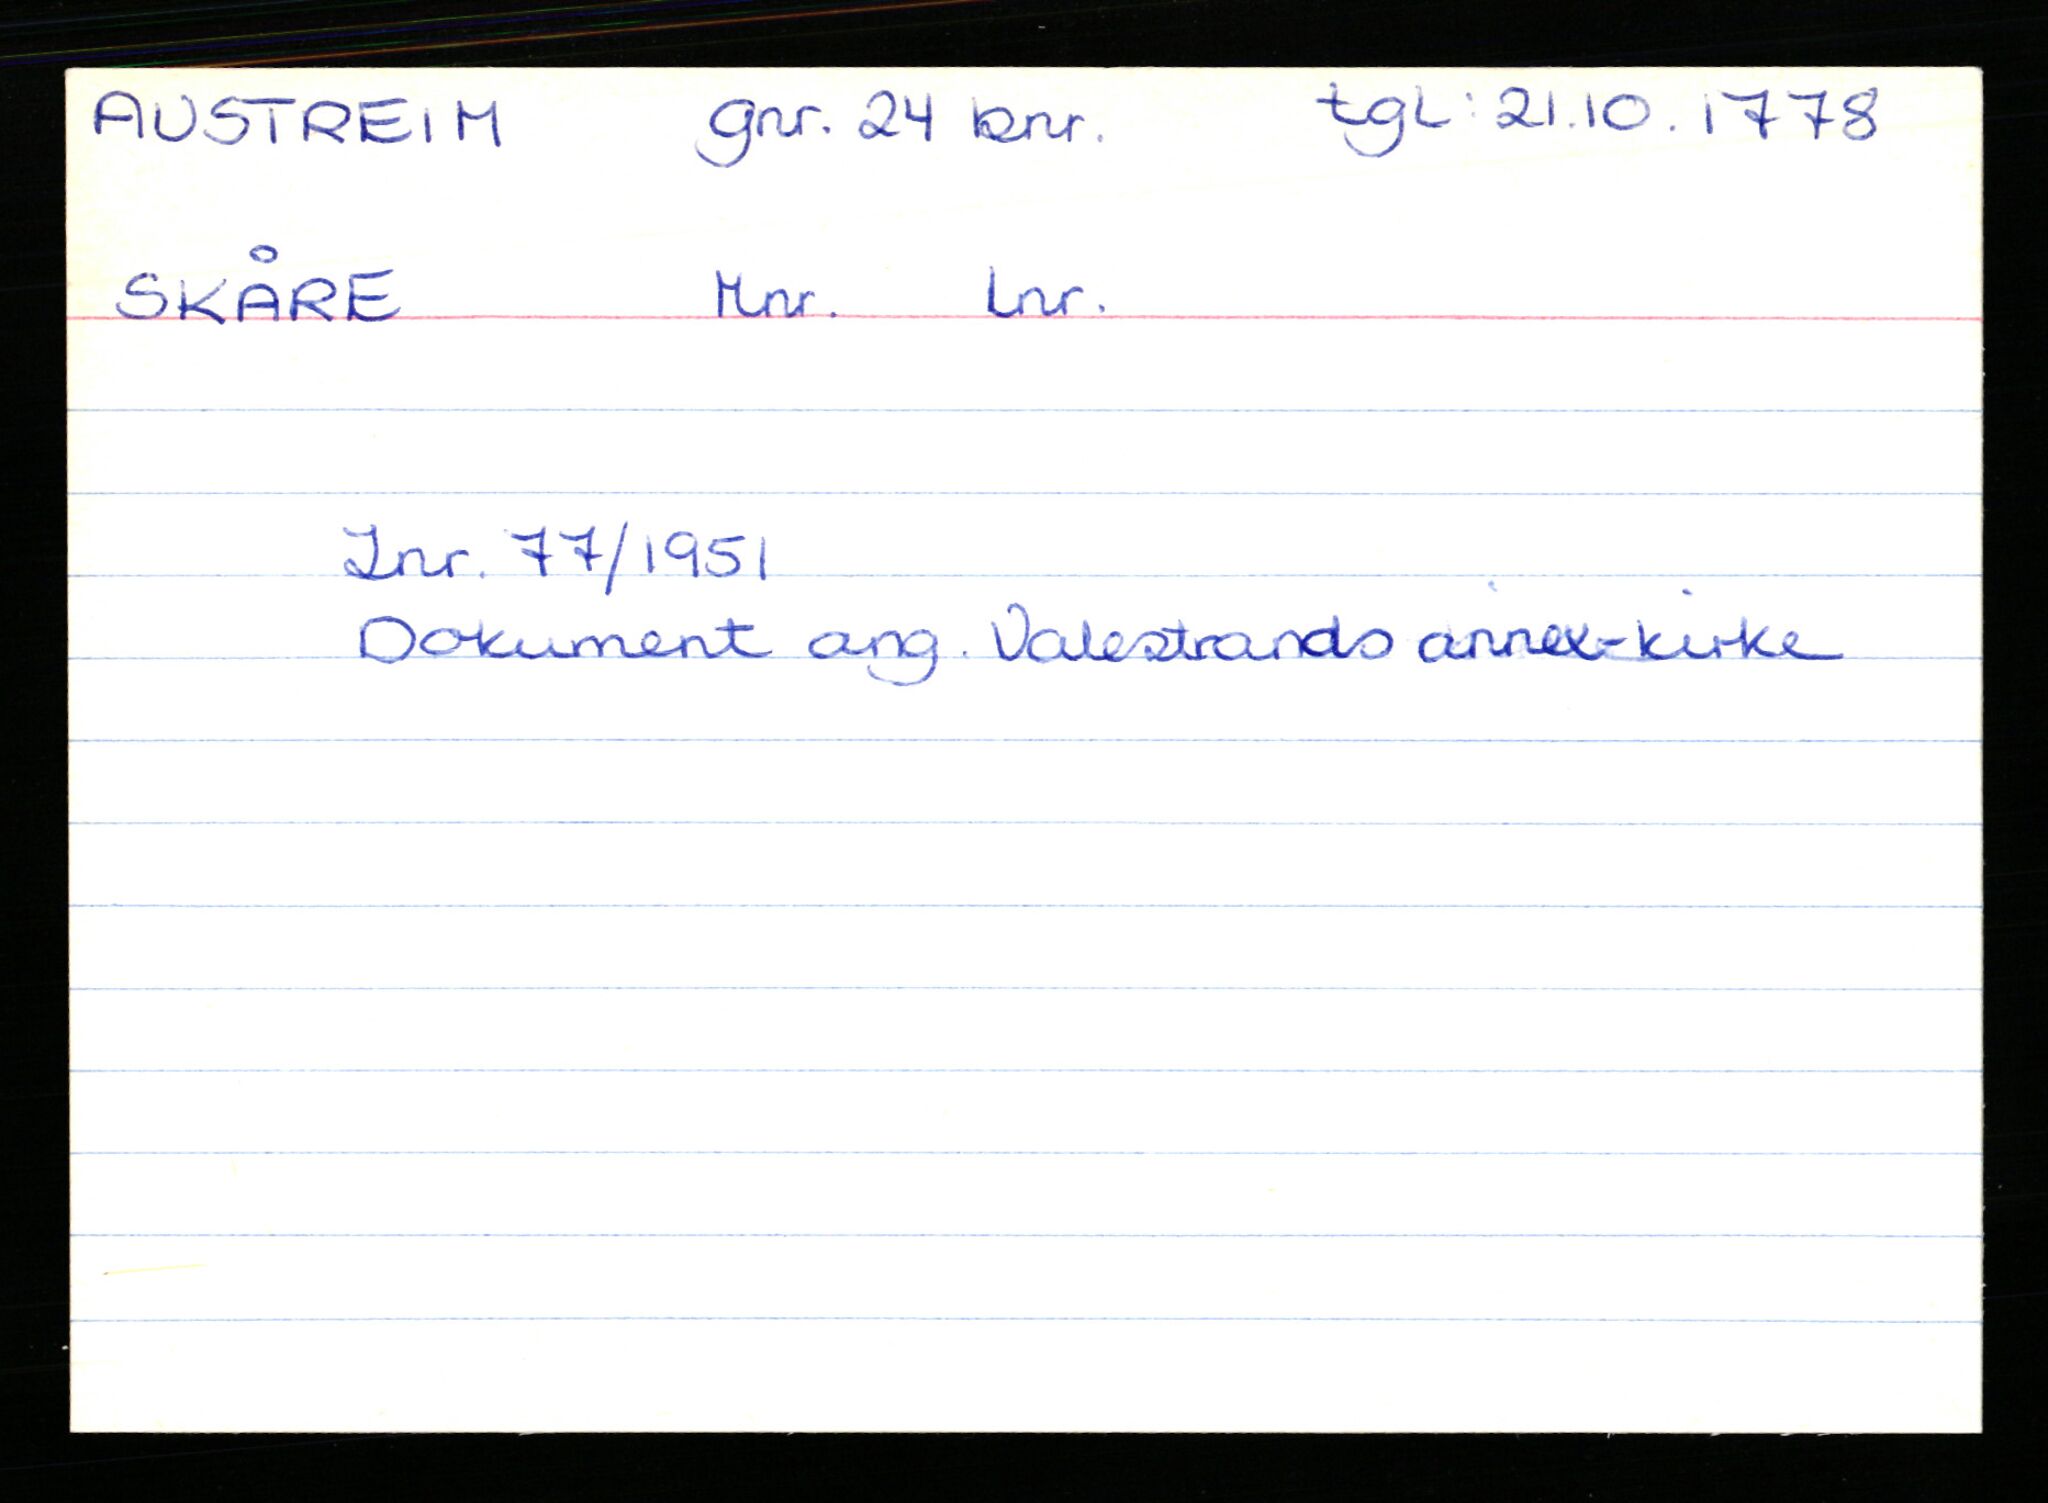 AUSTREIM gnr. 24 bnr. tgl: 21.10.1778
SKÅRE Mnr. Lnr.
Jnr. 77/1951
Dokument ang. Valestrands annex-kirke